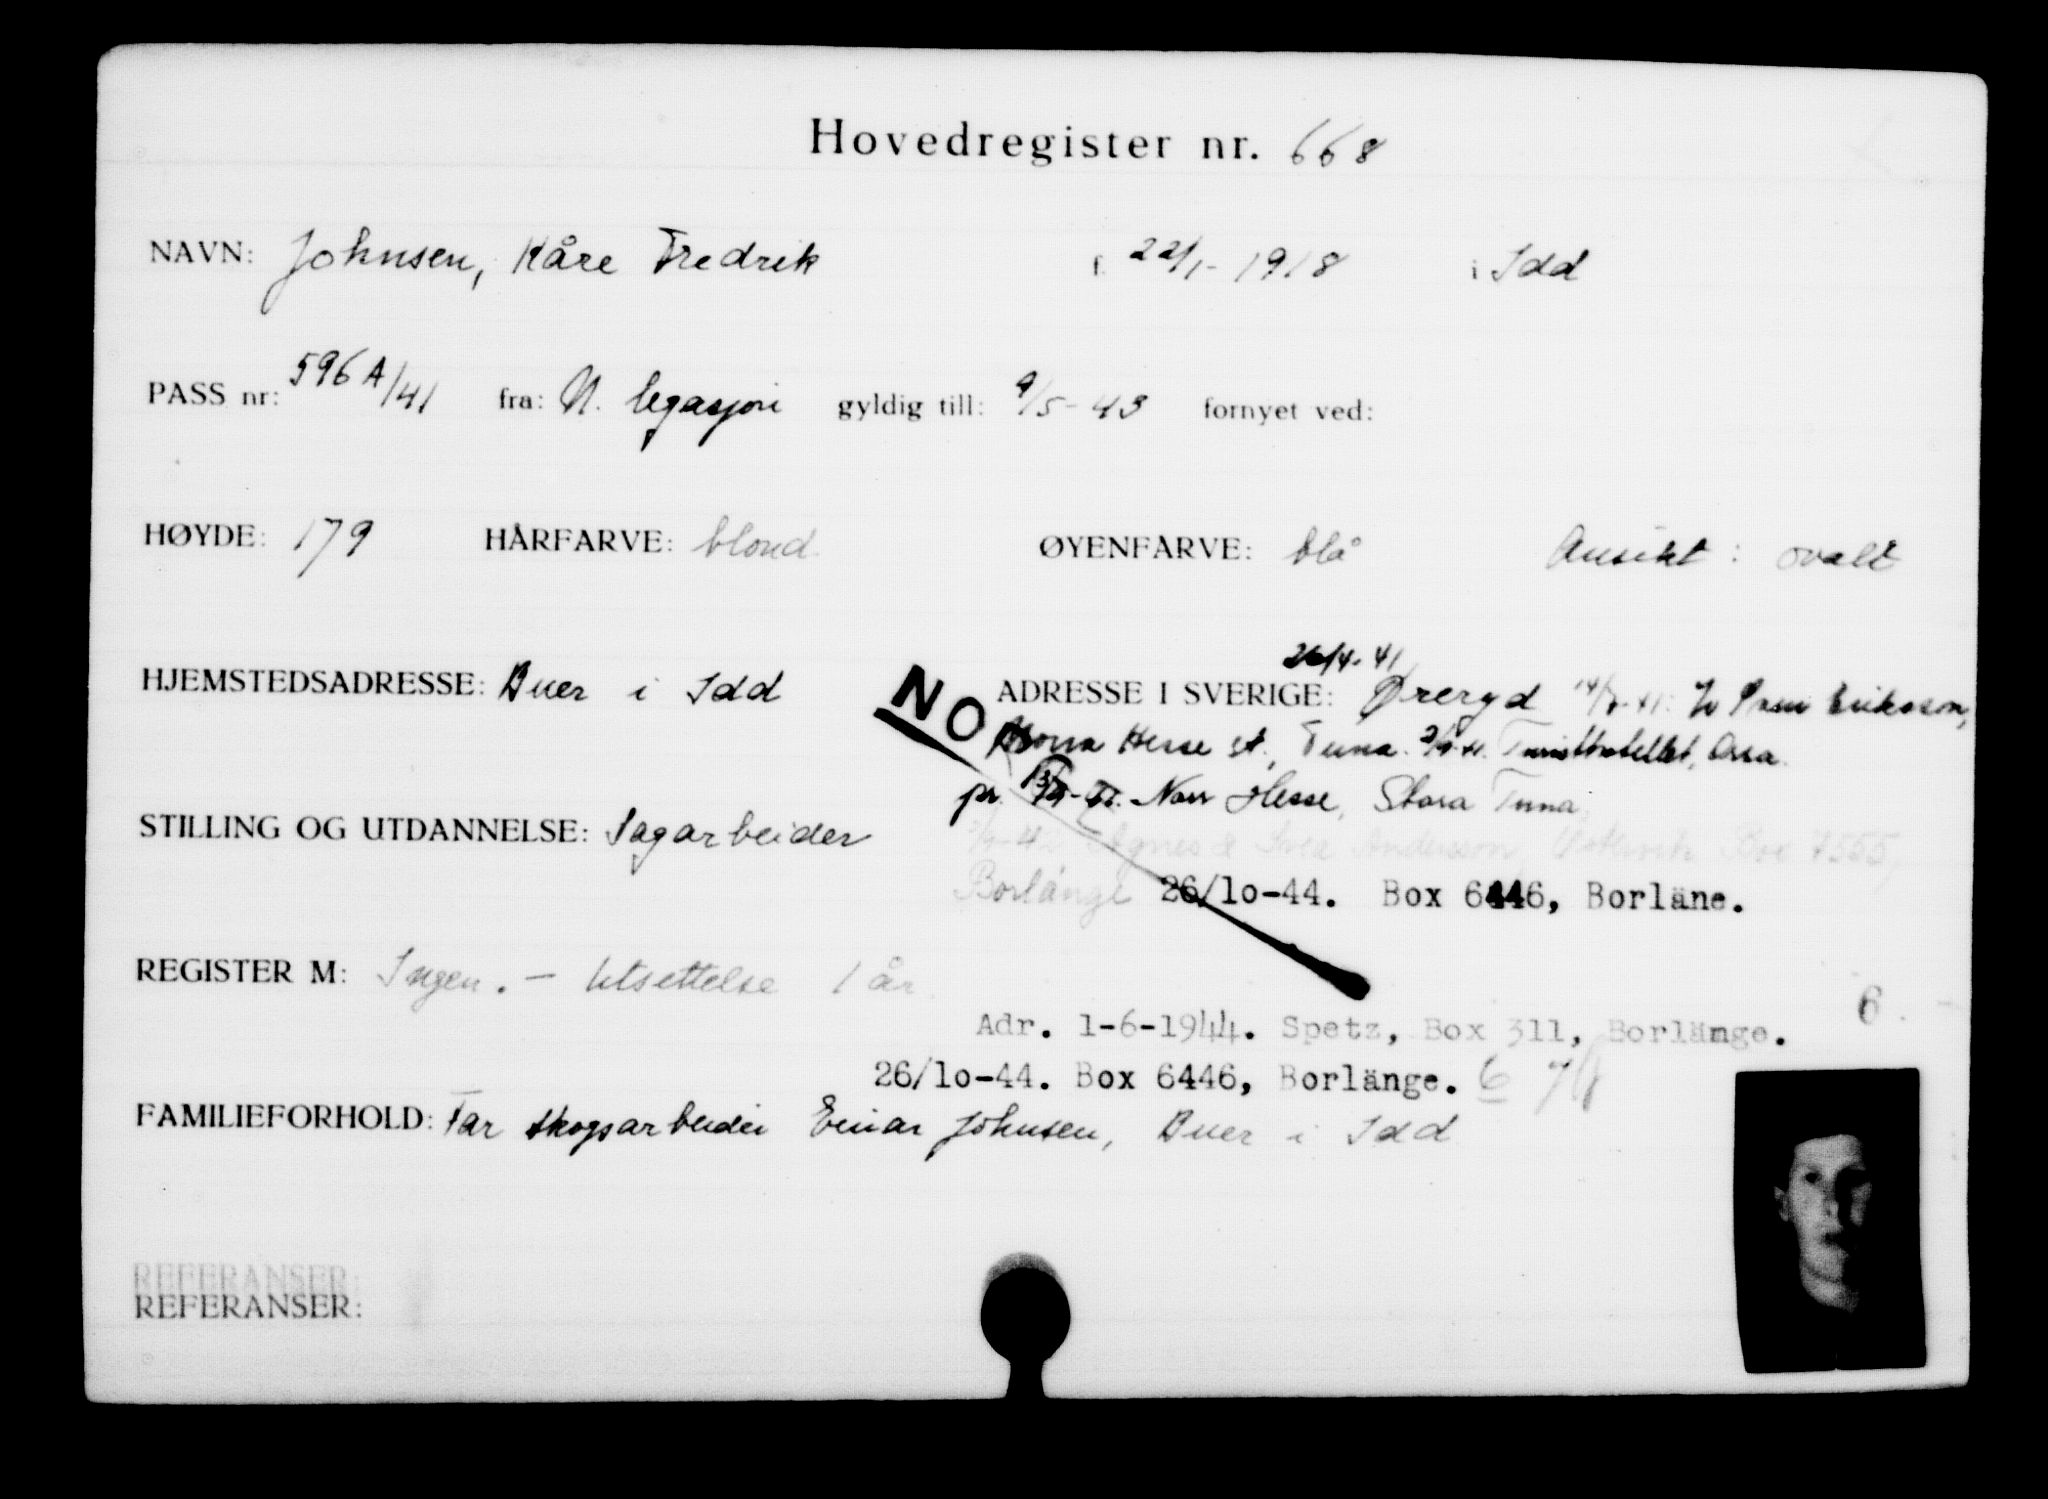 Hovedregister nr. 668
NAVN: Johnsen, Kåre Fredrik f. 22/1-1918 i Idd
PASS nr: 596 A/41 fra: N. legasjon gyldig till: 9/5-43 fornyet ved:
HØYDE: 179 HÅRFARVE: blond. ØYENFARVE: blå Ansikt: ovalt
26/4-41
HJEMSTEDSADRESSE: Buer i Idd NO ADRESSE I SVERIGE: Øreryd Eriksson,
Norra Hesse st., Tuna. Turisthotellet, Orsa.
pr. Norr Hesse, Stora Tuna
STILLING OG UTDANNELSE: Sagarbeider
Agnes & Svea Andersson, Box 7555,
Borlänge 26/10-44. Box 6446, Borläne.
REGISTER M: Ingen. - Utsettelse 1 år
6
Adr. 1-6-1944. Spetz, Box 311, Borlänge.
26/10-44. Box 6446, Borlänge. 6
FAMILIEFORHOLD: Far skogsarbeider Einar Johnsen, Buer i Idd
REFERANSER:
REFERANSER: